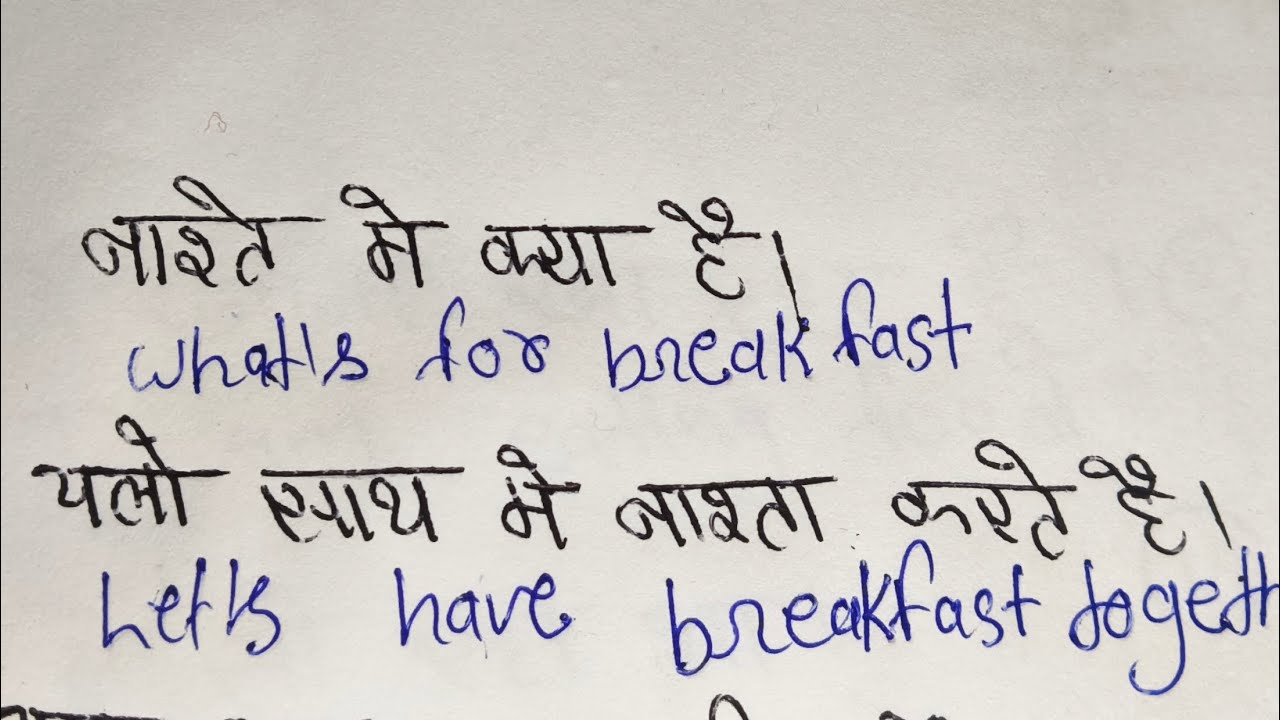 नाश्ते मे क्या है।
what's for breakfast
चलो साथ मे नाश्ता करते है।
Let's have breakfast togeth